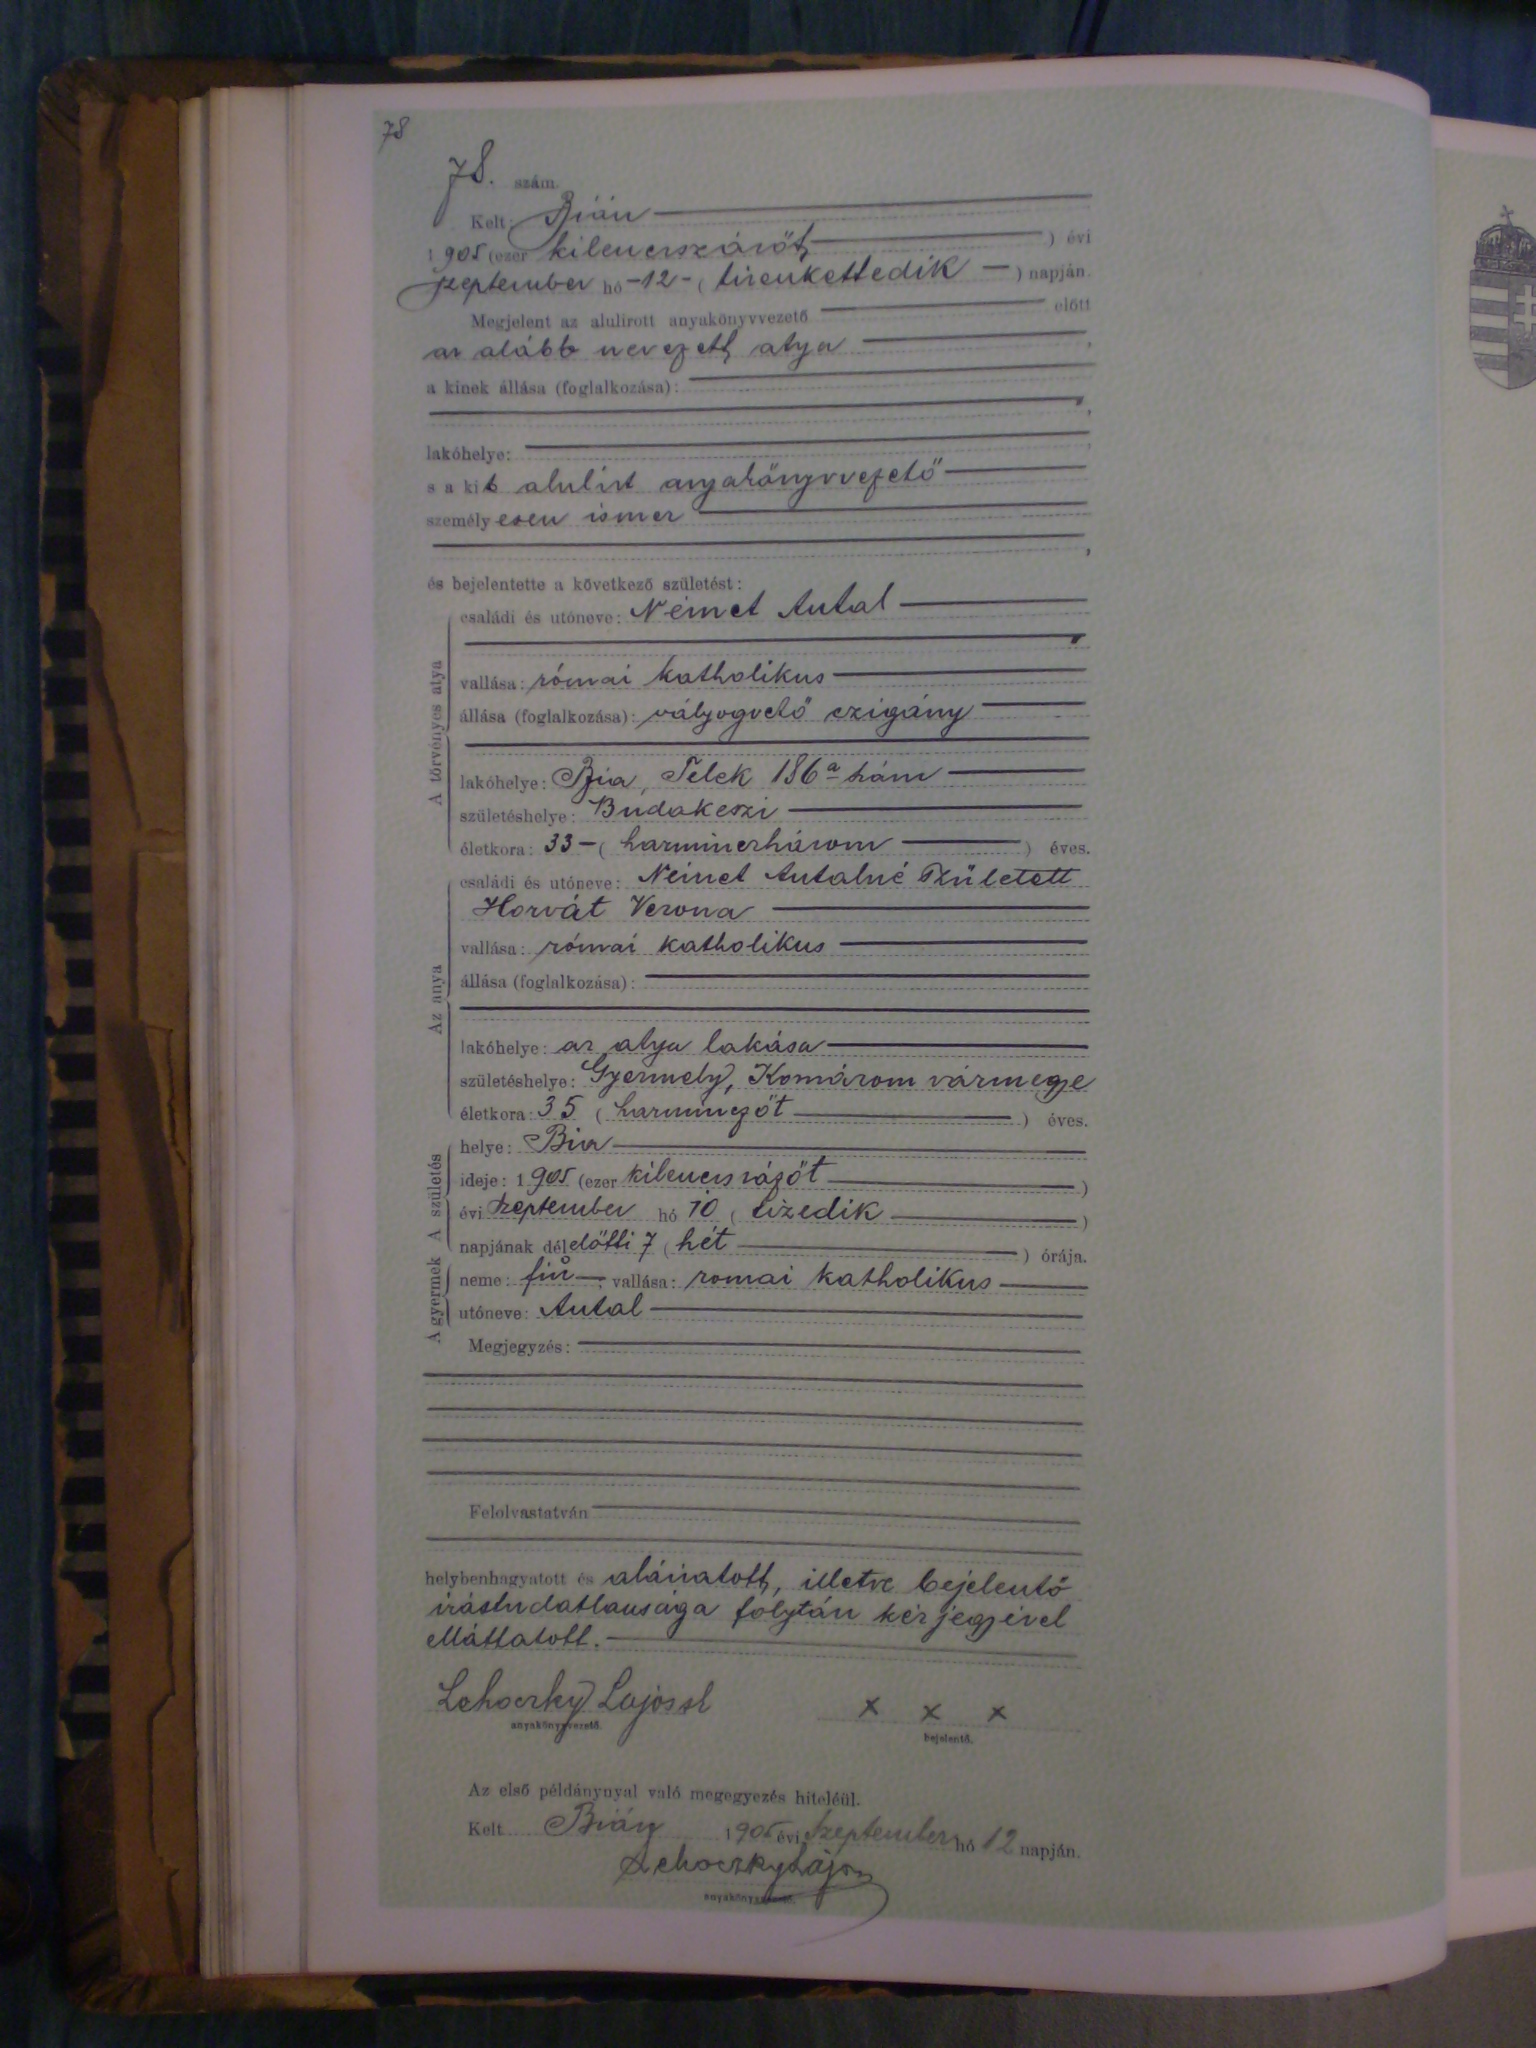 78
78. szám.
Kelt: Bián
1905 (ezer kilenczszázöt) évi
szeptember hó -12- (tizenkettedik) napján.
Megjelent az alulirott anyakönyvvezető előtt
az alább nevezett atya,
a kinek állása (foglalkozása):
lakóhelye:
s a kit alulirt anyakönyvvezető
személyesen ismer
és bejelentette a következő születést:
A törvényes atya
családi és utóneve: Német Antal
vallása: római katholikus
állása (foglalkozása): vályogvető czigány
lakóhelye: Bia, Telek 186a hám
születéshelye: Budakeszi
életkora: 33 - (harminczhárom) éves.
Az anya
családi és utóneve: Német Antalné Született
Horvát Verona
vallása: római katholikus
állása (foglalkozása):
lakóhelye: az atya lakása
születéshelye: Gyermely, Komárom vármegye
életkora: 35 (harminczöt) éves.
A születés
helye: Bia
ideje: 1905 (ezer kilenczszázöt)
évi szeptember hó 10 (tizedik)
napjának délelőtti 7 (hét) órája.
A gyermek
neme: fiú; vallása: romai katholikus
utóneve: Antal
Megjegyzés:
Felolvastatván
helybenhagyatott és aláiratott, illetve bejelentő
irástudatlansága folytán kézjegyével
elláttatott.
Lehoczky Lajos sk x x x
anyakönyvvezető. bejelentő.
Az első példánynyal való megegyezés hiteléül.
Kelt Bián 1905 évi szeptember hó 12 napján.
Lehoczky Lajos
anyakönyvvezető.